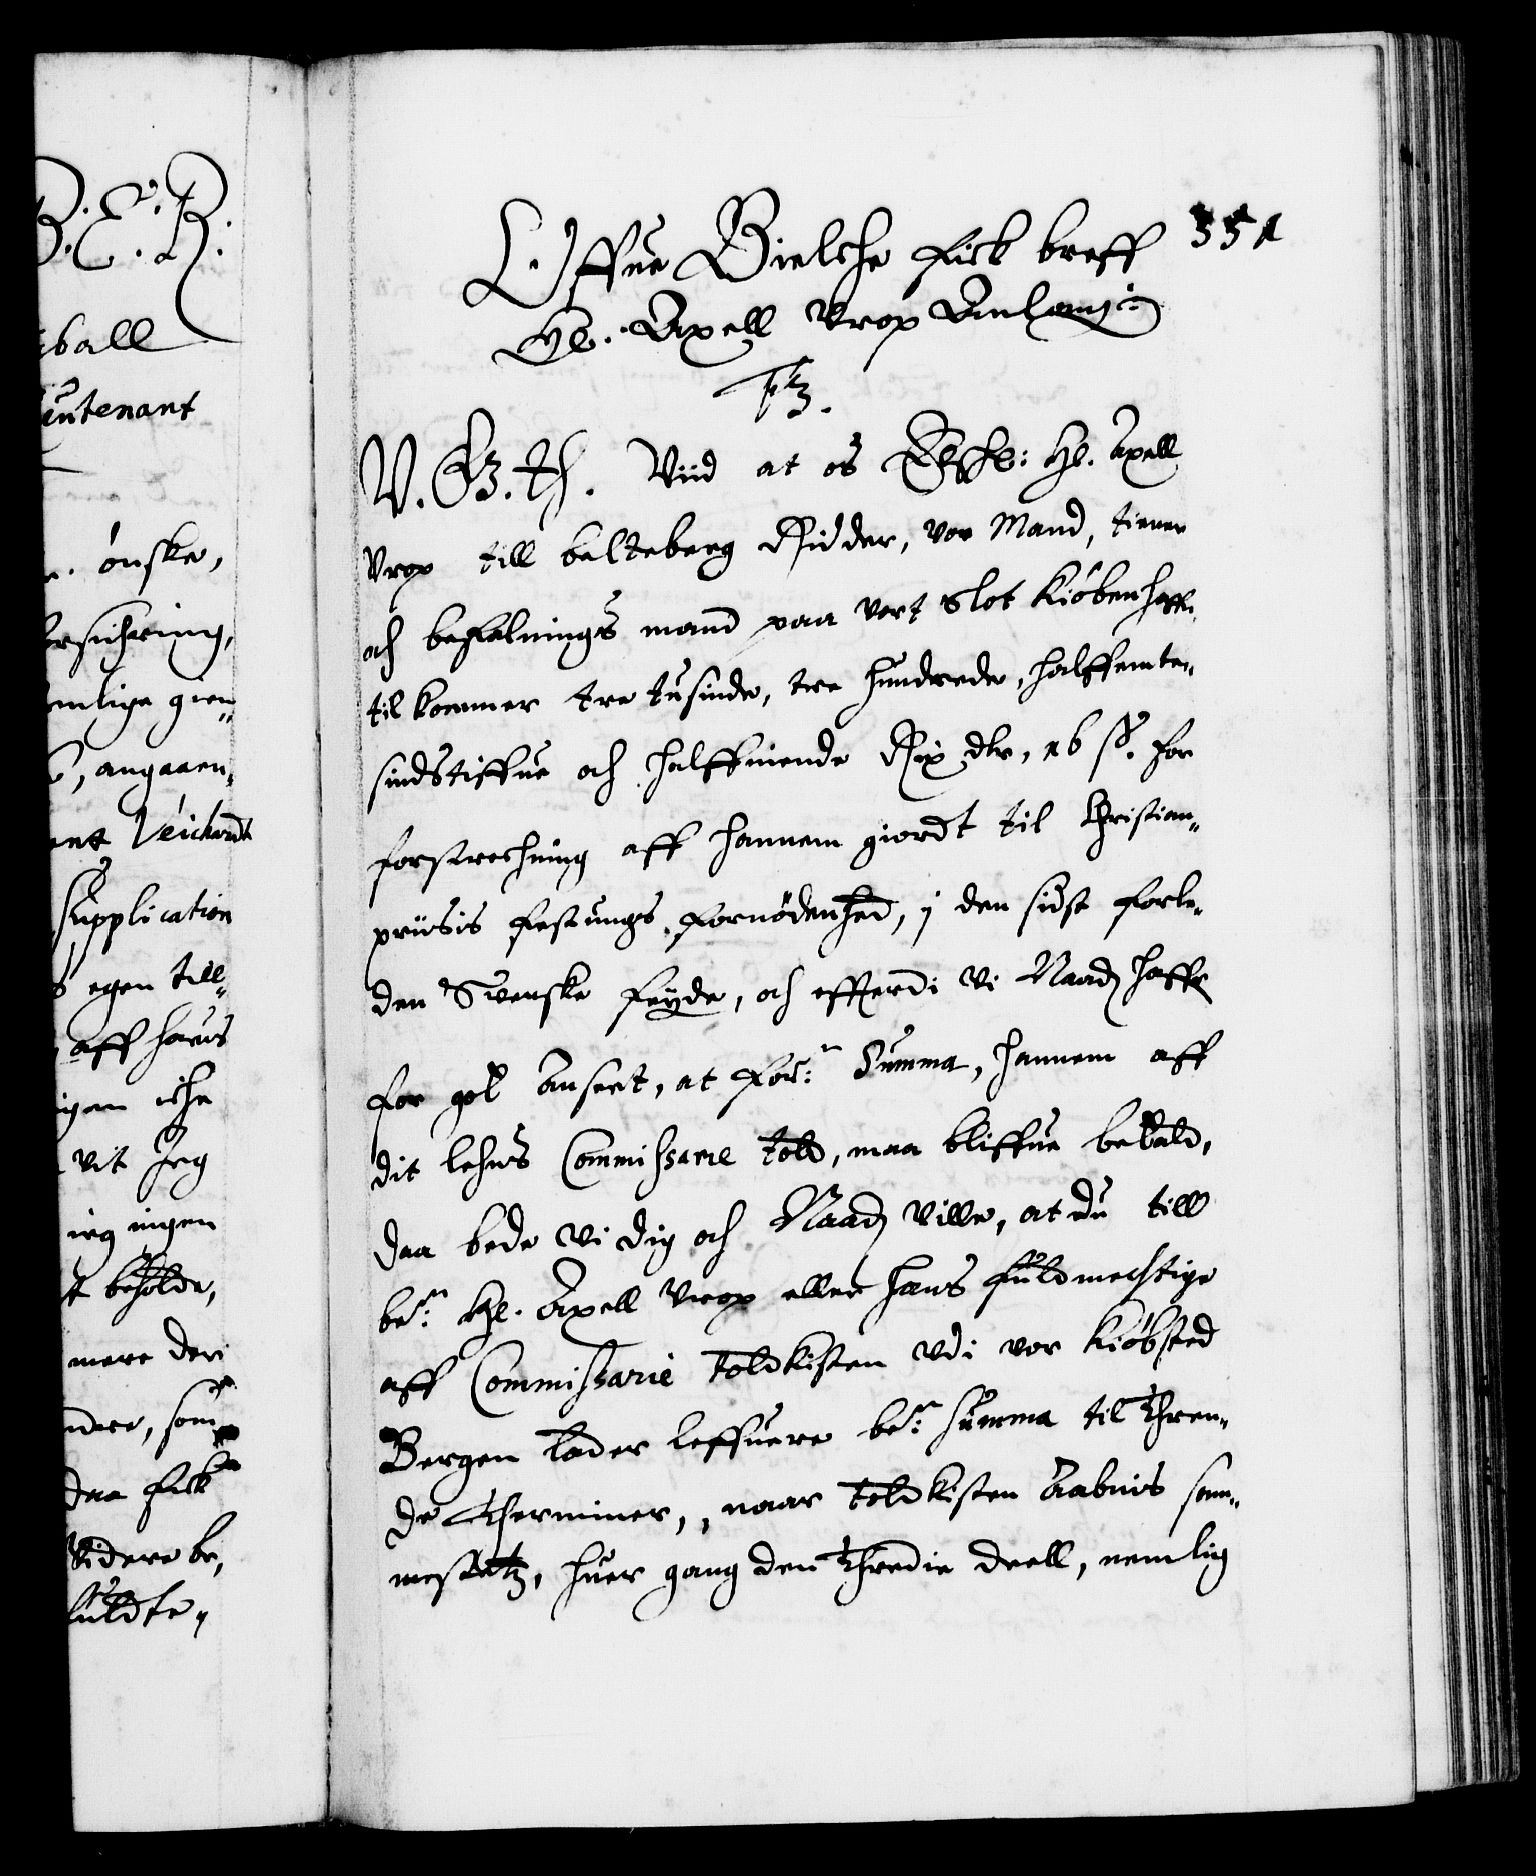 B. E. R.
ball
eutenant
ønske,
forsichring,
emlige gien„
angaaen„
Veichardt
supplication
egen till„
aff hans
igen iche
vit Jeg
ieg ingen
beholde,
mere der
ndre, som
daa fick
Videre be„
fuldte„
351
Offue Bielche fick breff
Hl. Axell Vrop Anlang:
V. G. t. Viid at os Elshl: Hl. Axell
Vrop till belteberg Ridder, vor Mand, tiener
och befalnings mand paa vort Slot Kiøbenhaffn
til kommer tre tusinde, tre hundrede, halffemte„
sindstiffue och halffniende Rix dlr, 16 ß. for
forstrechning aff hannem giordt til Christian„
priisis festungs fornødenhed, j den sidst forle„
den Svenske feyde, och efftterdi vi Naad haffr
for got Anseet, at for:n Summa, hannem aff
dit lehns Commissarie told, maa bliffue betald,
daa bede vi dig och Naad ville, at du till
be:n Hl. Axell Vrop eller hans fuldmechtige
aff Commissarie toldkisten vdi vor Kiøbsted
Bergen lader leffuere be:n Summa til thren„
de therminer, naar toldkisten Aabnis som„
mestetz, huer gang den thredie deell, nemlig